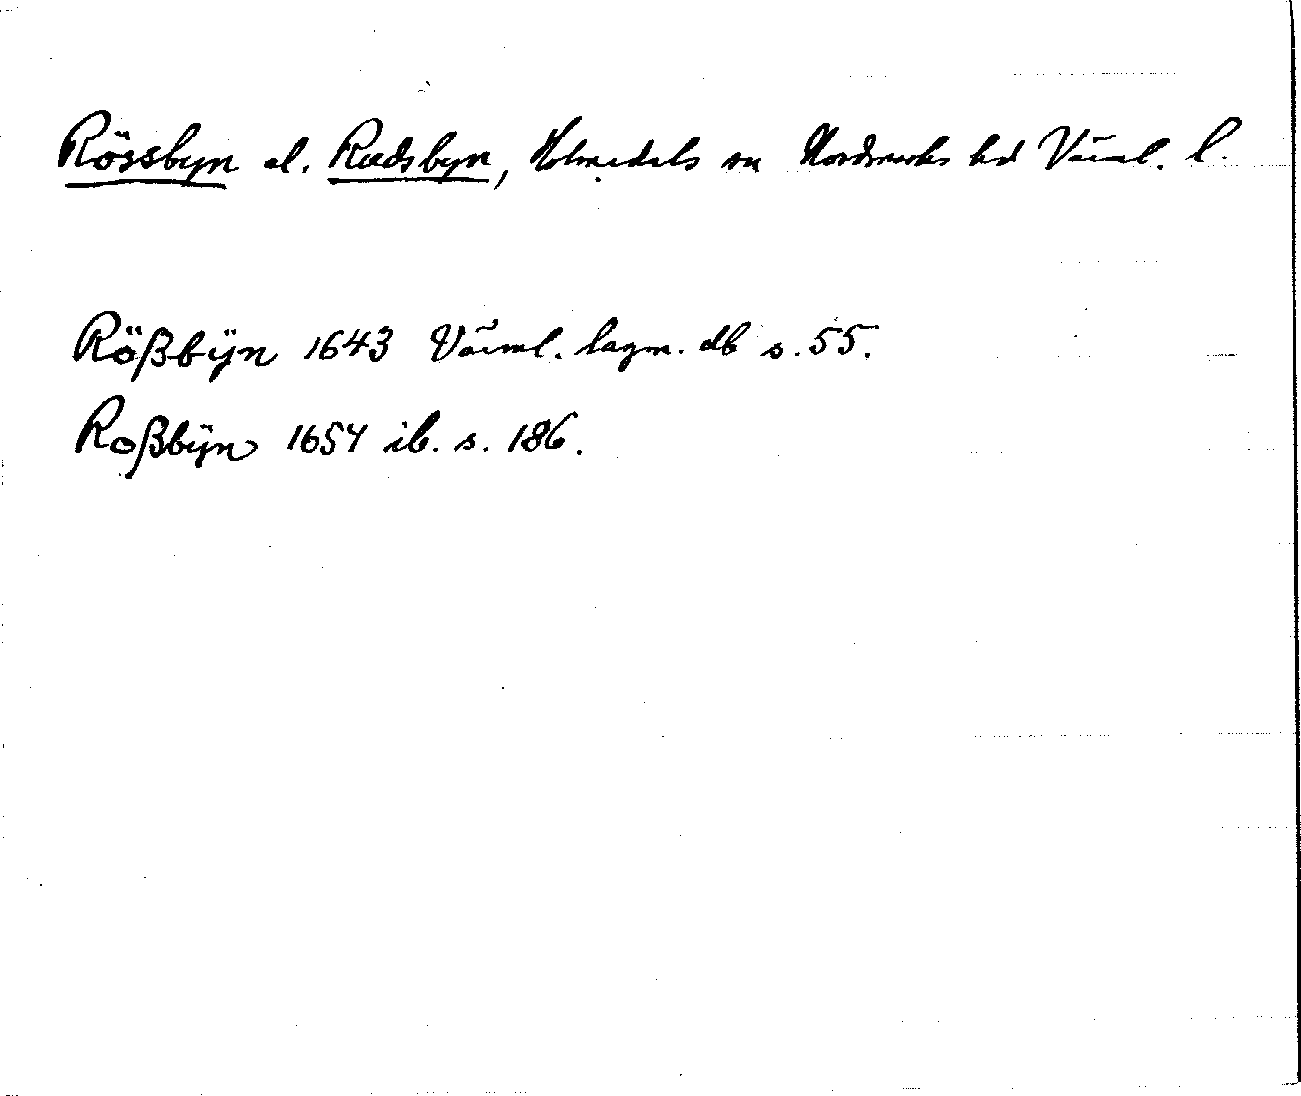 Rössbyn el. Rudsbyn, Holmedals sn Nordmarks hd Värml. l.
Rößbÿn 1643 Värml. lagm. db s. 55.
Roßbÿn 1654 ib. s. 186.